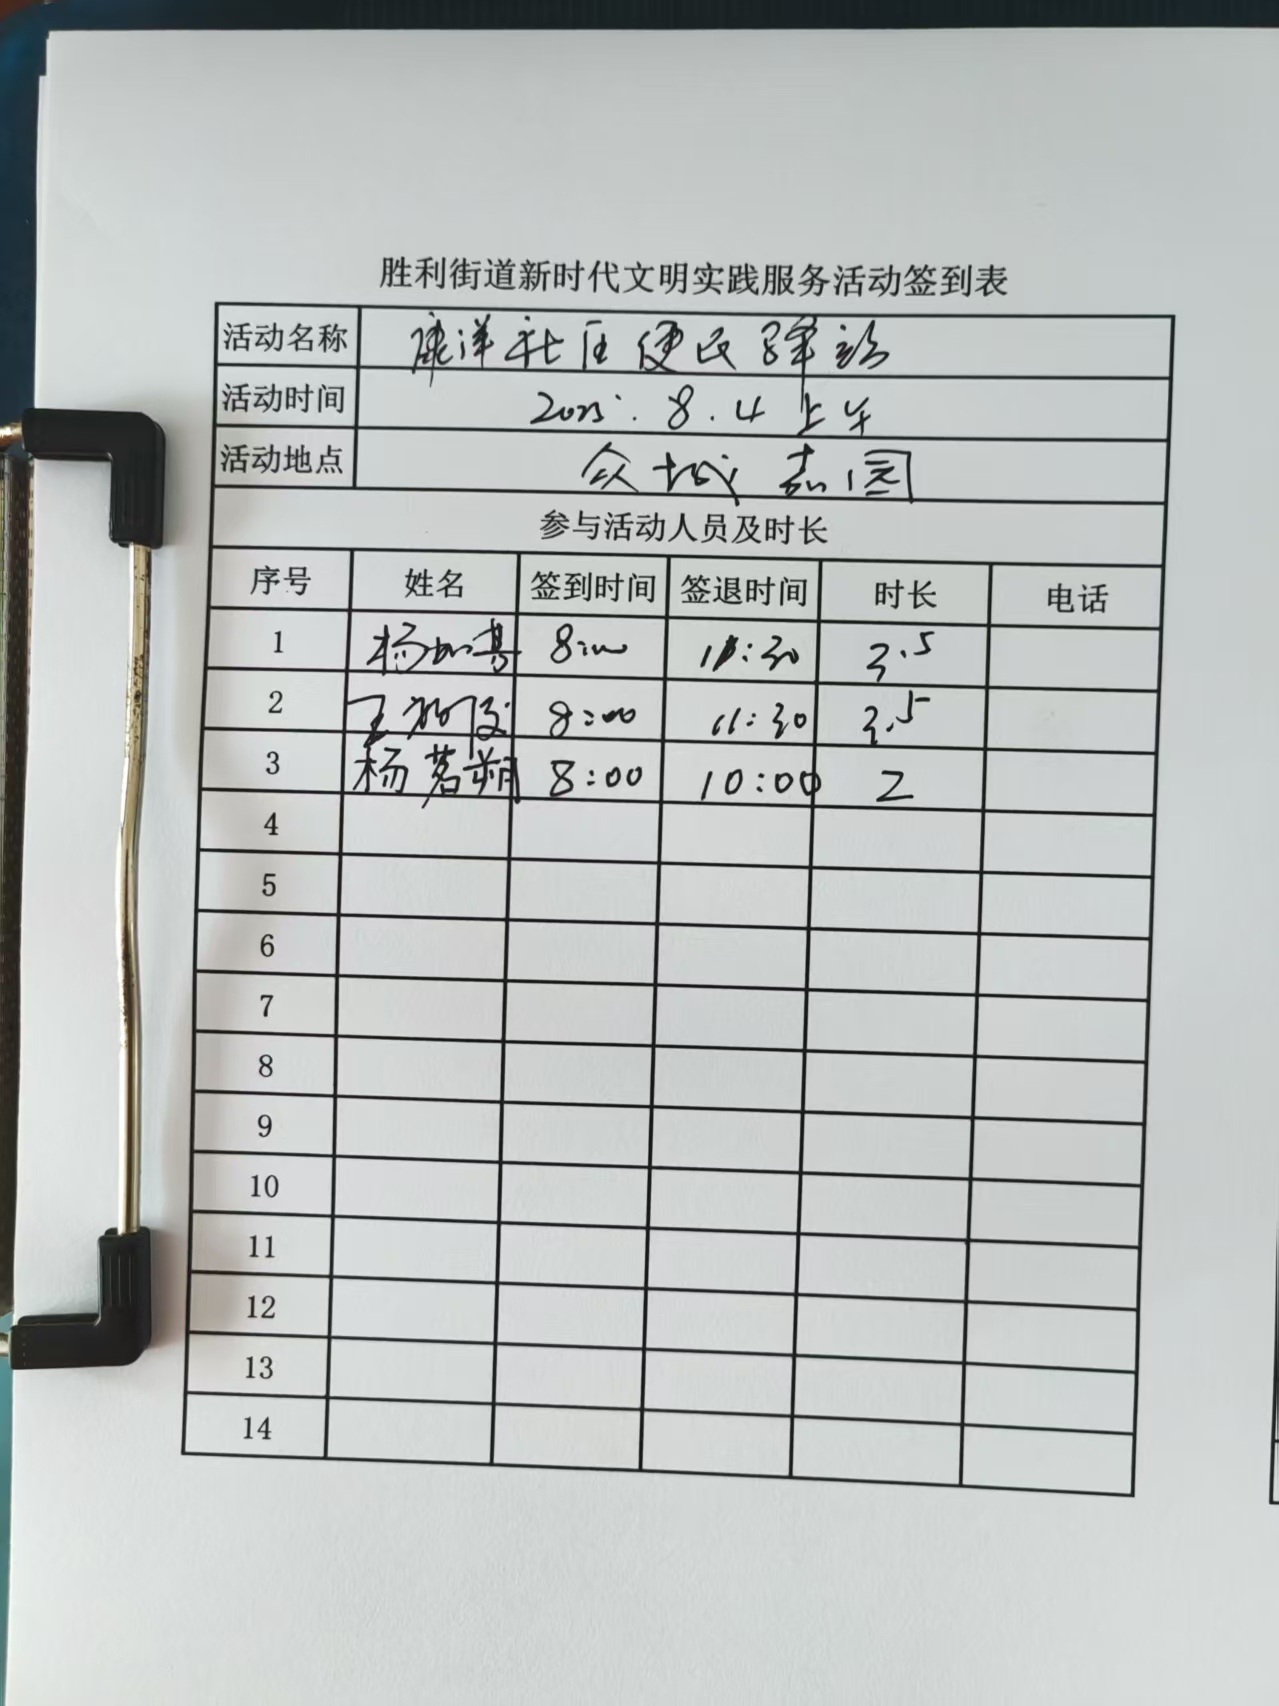 胜利街道新时代文明实践服务活动签到表
活动名称 康洋社区便民驿站
活动时间 2025.8.4上午
活动地点 众城嘉园
参与活动人员及时长
序号 姓名 签到时间 签退时间 时长 电话
1 杨 8:00 11:30 3.5
2 王 8:00 11:30 3.5
3 杨茗朔 8:00 10:00 2
4
5
6
7
8
9
10
11
12
13
14